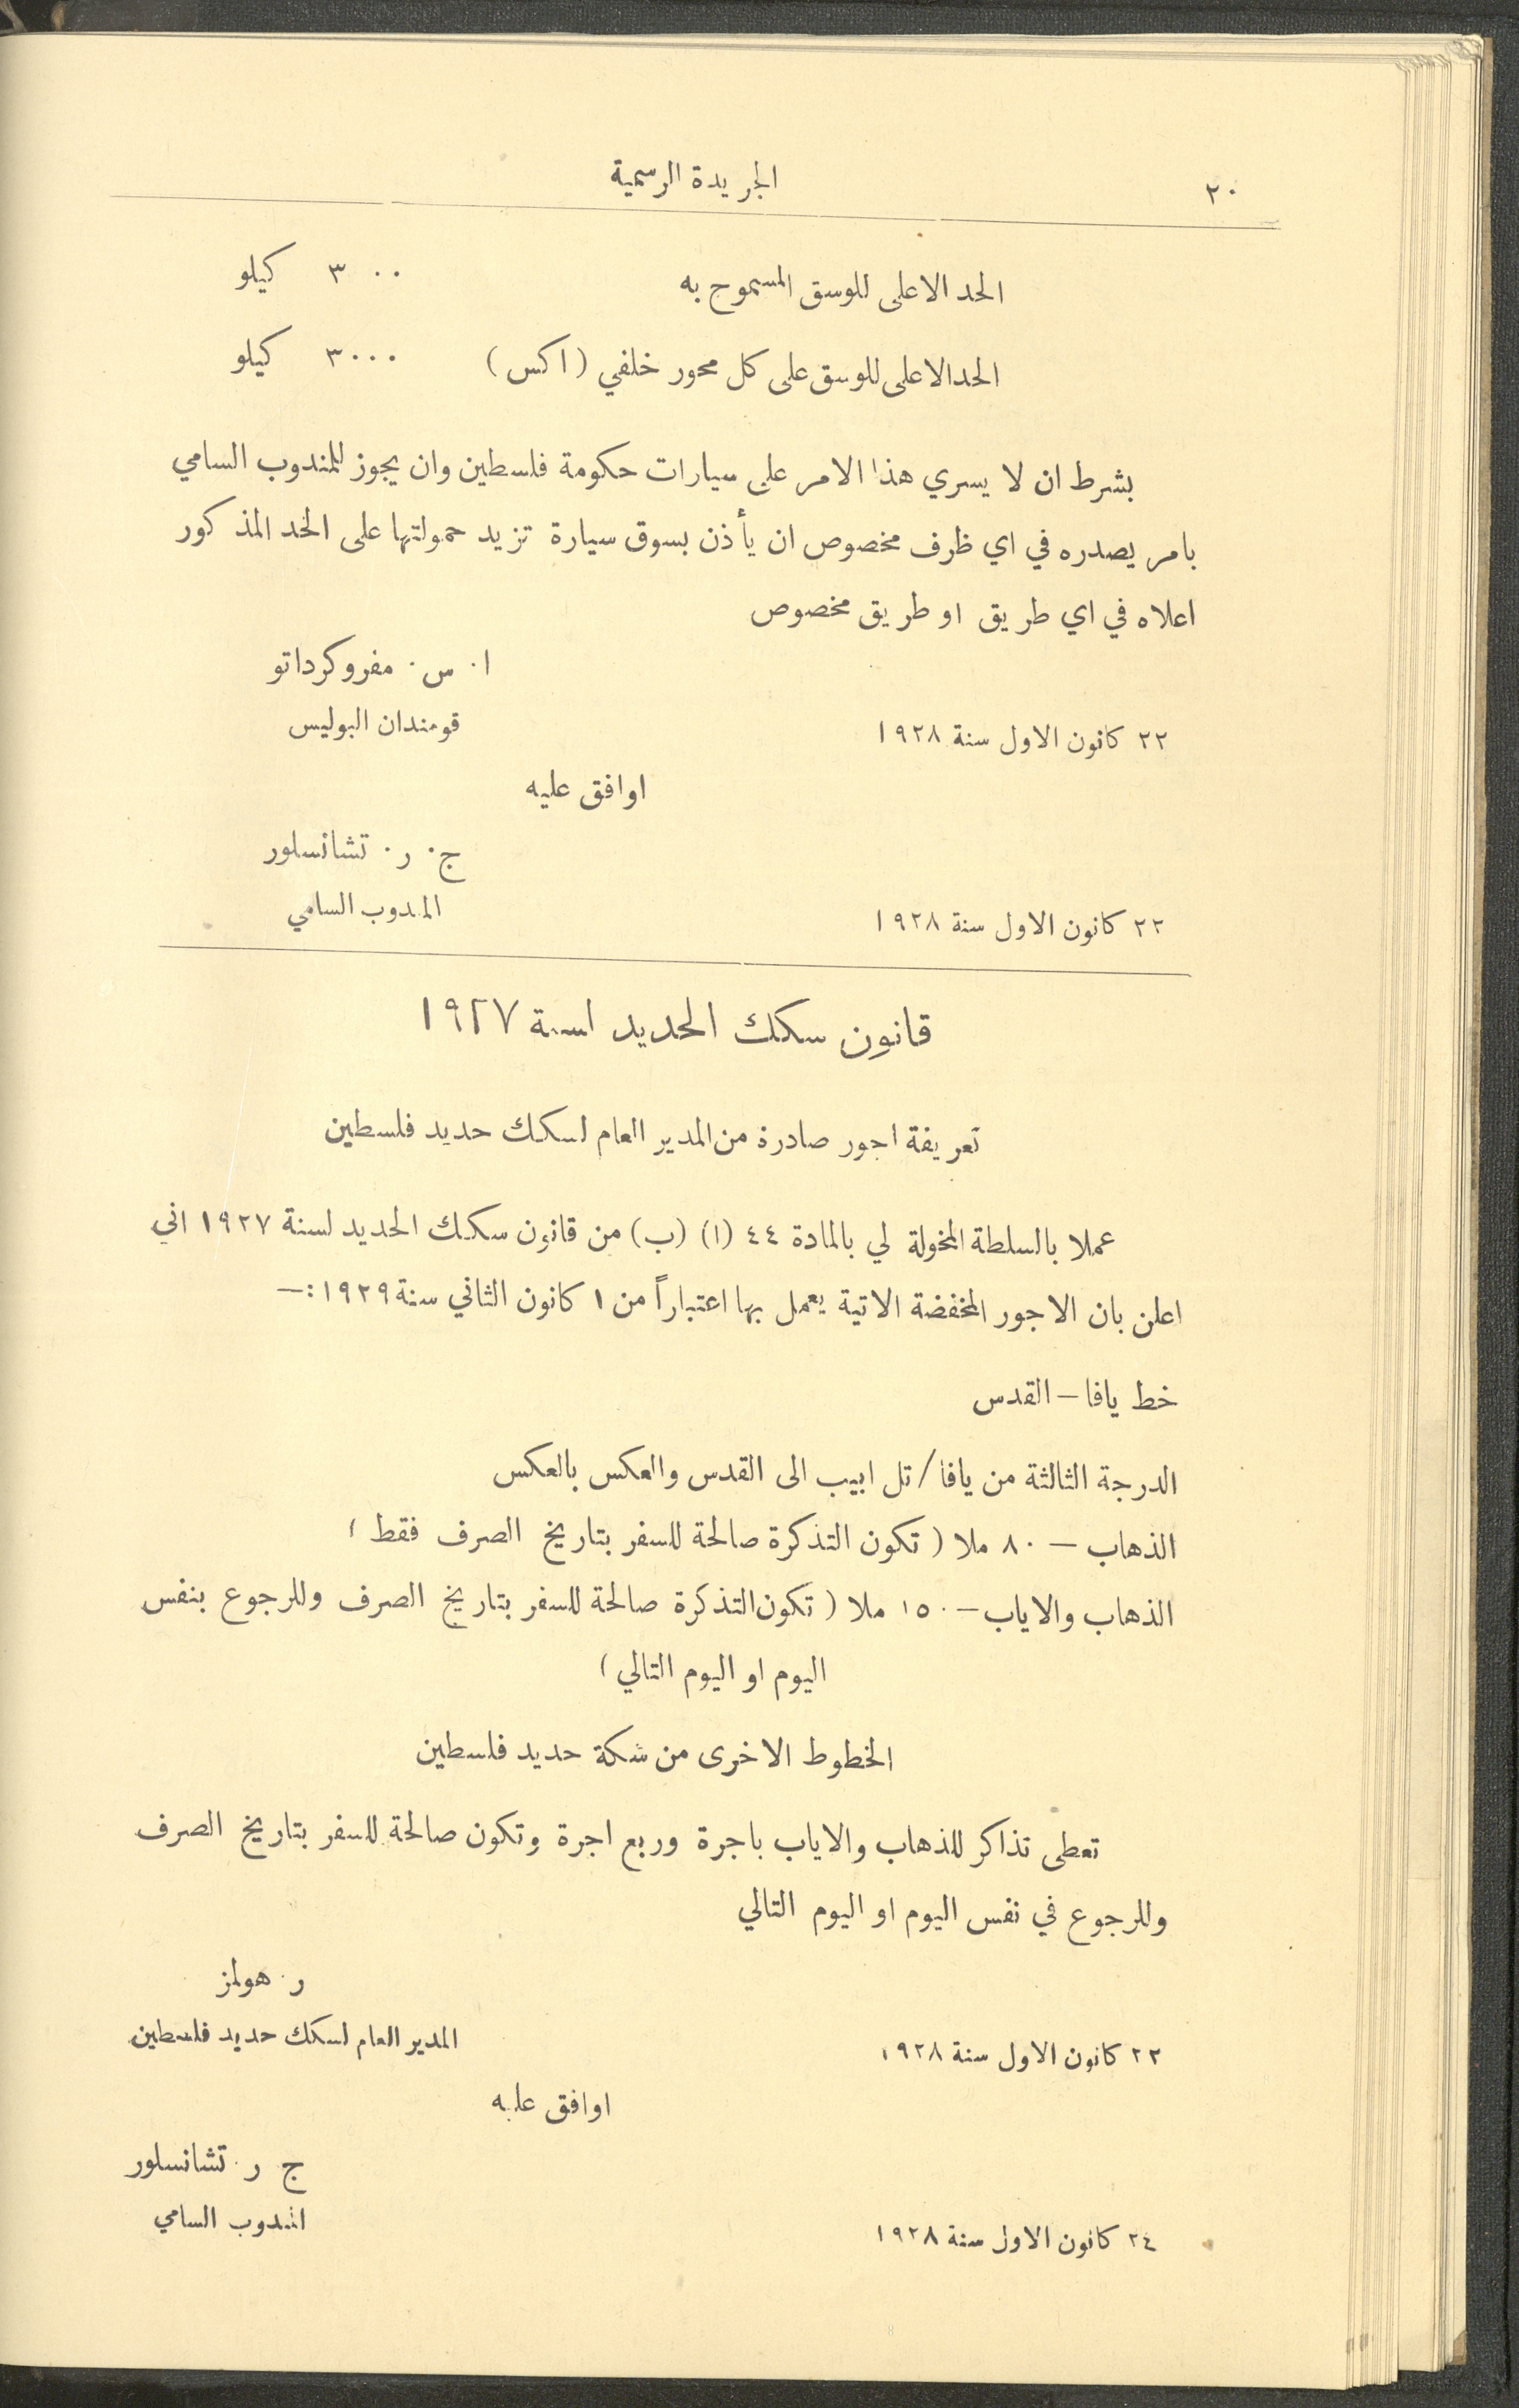 ٢٠ الجريدة الرسمية
الحد الاعلى للوسق المسموح به ٣٠٠ كيلو
الحد الاعلى للوسق على كل محور خلفي (اكس) ٣٠٠٠ كيلو
بشرط ان لا يسري هذا الامر على سيارات حكومة فلسطين وان يجوز للمندوب السامي
بامر يصدره في اي ظرف مخصوص ان يأذن بسوق سيارة تزيد حمولتها على الحد المذكور
اعلاه في اي طريق او طريق مخصوص
ا. س. مفروكرداتو
٢٢ كانون الاول سنة ١٩٢٨ قومندان البوليس
اوافق عليه
ج. ر. تشانسلور
٢٢ كانون الاول سنة ١٩٢٨ المندوب السامي
قانون سكك الحديد لسنة ١٩٢٧
تعريفة اجور صادرة من المدير العام لسكك حديد فلسطين
عملا بالسلطة المخولة لي بالمادة ٤٤ (١) (ب) من قانون سكك الحديد لسنة ١٩٢٧ اني
اعلن بان الاجور المخفضة الاتية يعمل بها اعتباراً من ١ كانون الثاني سنة ١٩٢٩ :—
خط يافا — القدس
الدرجة الثالثة من يافا / تل ابيب الى القدس والعكس بالعكس
الذهاب — ٨٠ ملا (تكون التذكرة صالحة للسفر بتاريخ الصرف فقط)
الذهاب والاياب — ١٥٠ ملا (تكون التذكرة صالحة للسفر بتاريخ الصرف وللرجوع بنفس
اليوم او اليوم التالي)
الخطوط الاخرى من شكة حديد فلسطين
تعطى تذاكر للذهاب والاياب باجرة وربع اجرة وتكون صالحة للسفر بتاريخ الصرف
وللرجوع في نفس اليوم او اليوم التالي
ر. هولمز
٢٢ كانون الاول سنة ١٩٢٨ المدير العام لسكك حديد فلسطين
اوافق عليه
ج ر. تشانسلور
٢٤ كانون الاول سنة ١٩٢٨ المندوب السامي